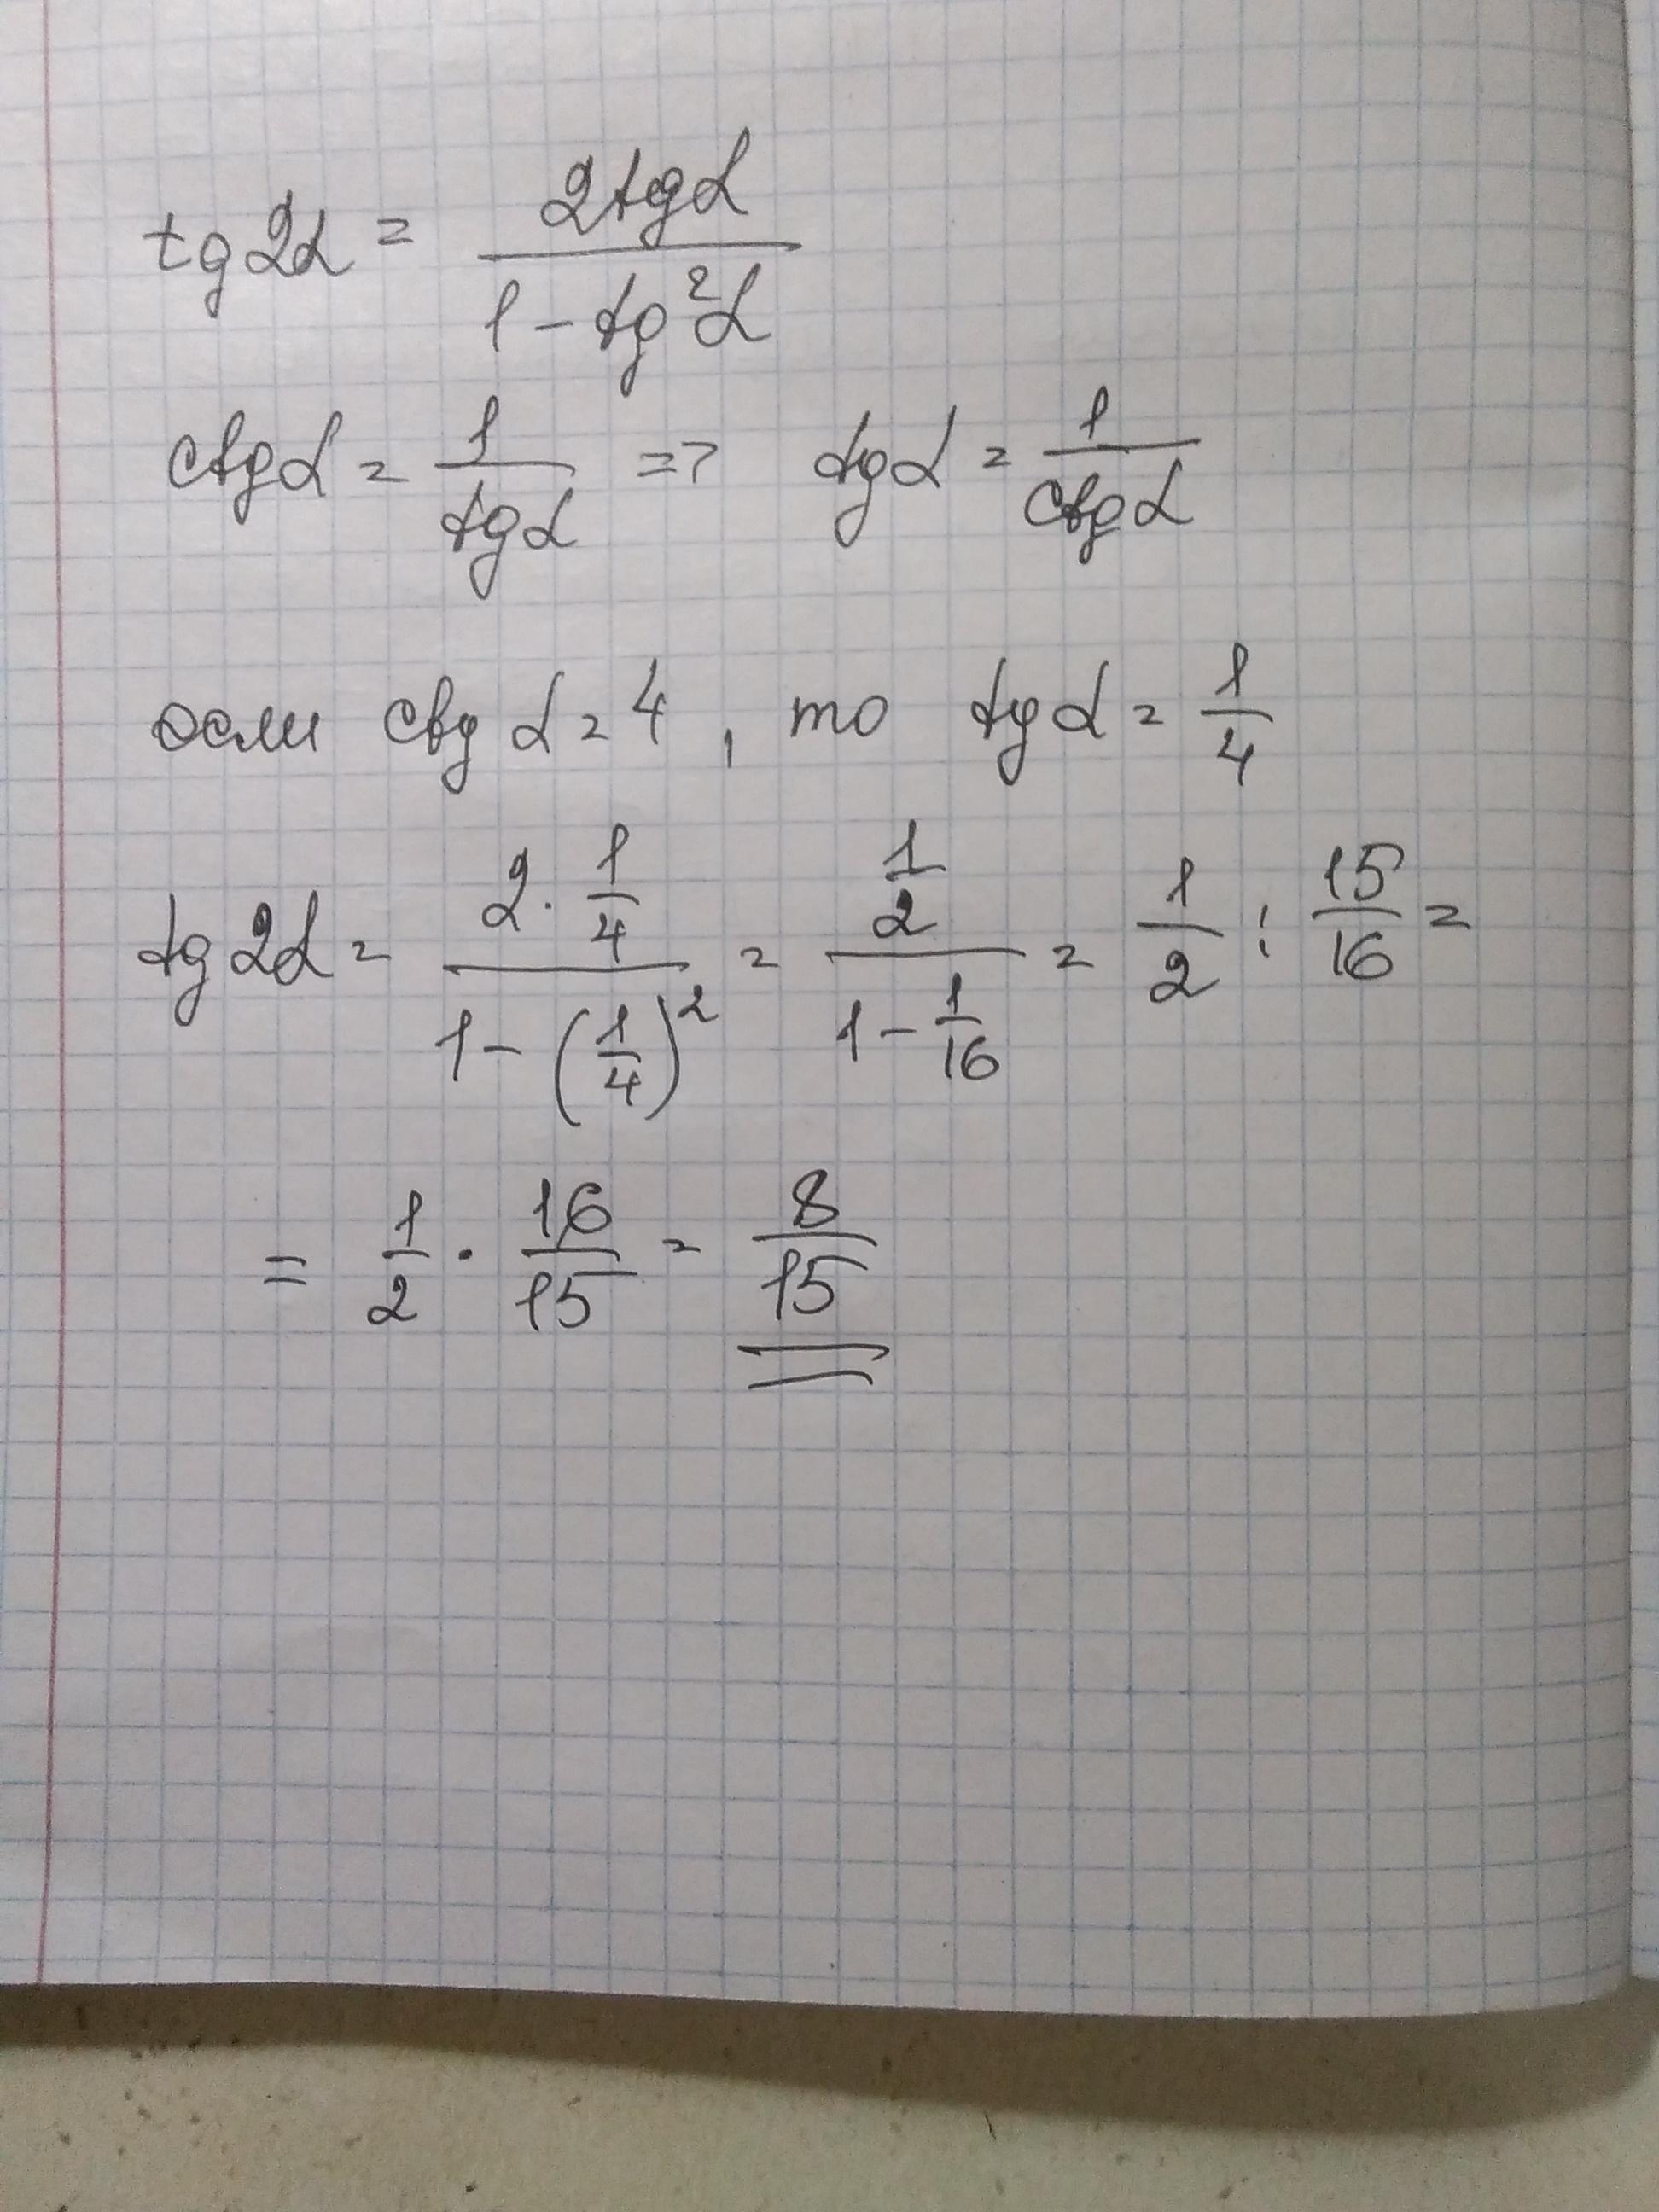 tg2α = 2tgα / (1 - tg²α)
ctgα = 1/tgα => tgα = 1/ctgα
если ctgα = 4, то tgα = 1/4
tg2α = (2 · 1/4) / (1 - (1/4)²) = (1/2) / (1 - 1/16) = 1/2 : 15/16 =
= 1/2 · 16/15 = 8/15